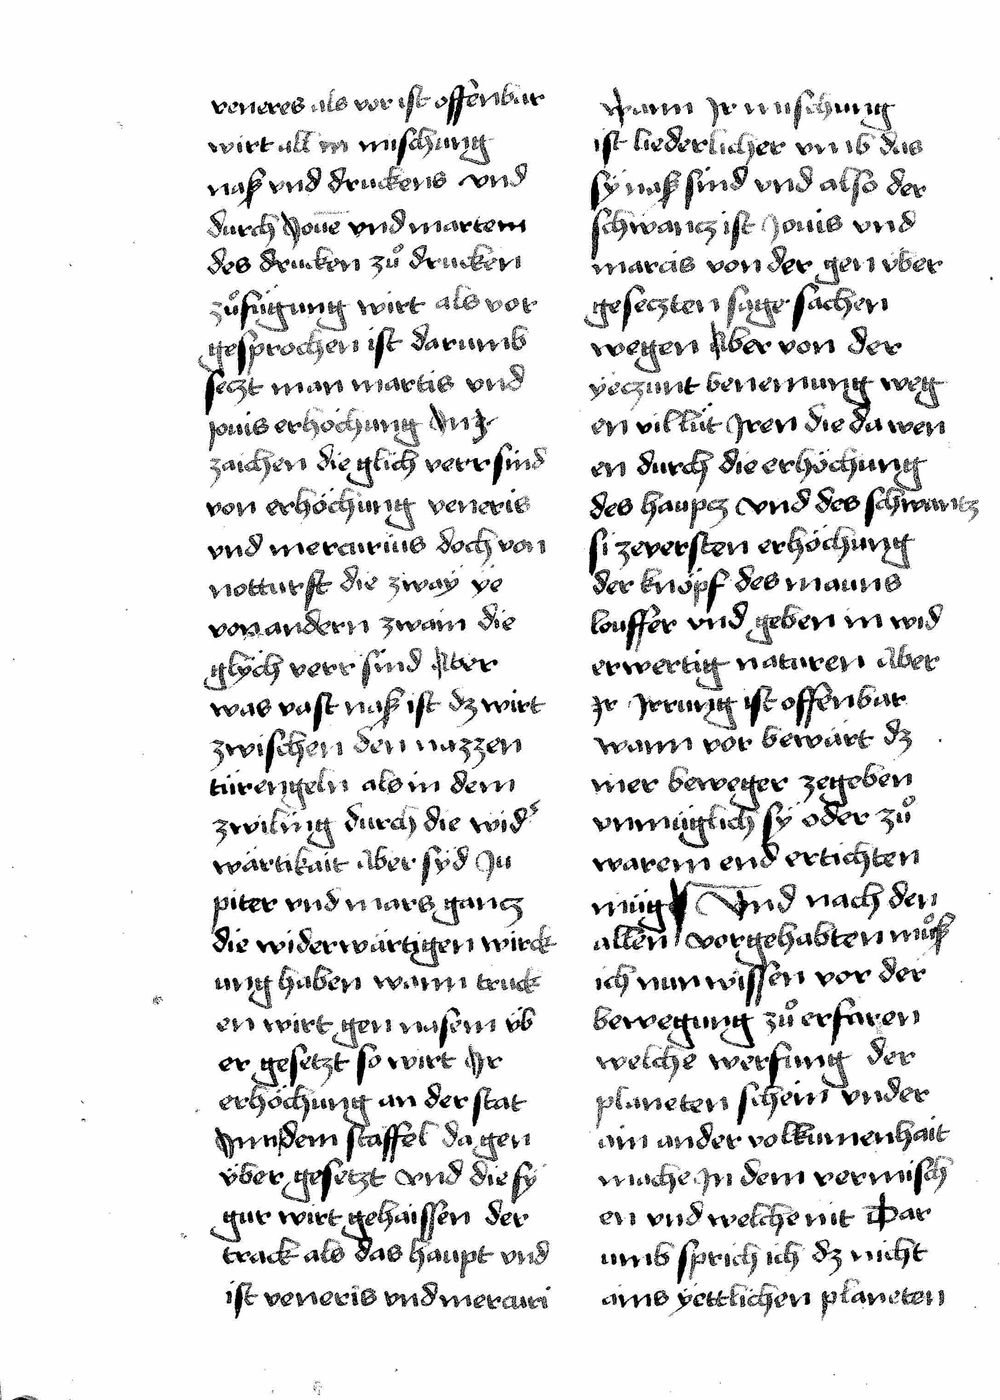 veneres als vor ist offenbar
wirt all in mischung
naß vnd druckens vnd
durch Joue vnd martem
des drucken zuͦ drucken
zuͦfuͤgung wirt als vor
gesprochen ist darumb
seczt man martis vnd
jouis erhoͤchung Jn
zaichen die glich verr sind
von erhoͤchung veneris
vnd mercurius doch von
notturft die zway ye
von andern zwain die
glych verr sind Aber
was vast naß ist dz wirt
zwischen den nazzen
türengeln als in dem
zwiling durch die wid
wärtikait Aber syd Ju
piter vnd mars gancz
die widerwärtigen wirck
ung haben wann truck
en wirt gen nasem vͤb
er gesetzt so wirt Jr
erhöchung an der stat
Jnn dem staffel da gen
vͤber gesetzt vnd die sy
gur wirt gehaissen der
track als das haupt vnd
ist veneris vnd mercuri
Wann Jr mischung
ist liederlicher vmb das
sy naß sind vnd also der
schwancz ist Jouis vnd
marcis von der gen vͤber
geseczten sage sachen
wegen Aber von der
yeczunt benemung weg
en vil lüt Jren die da wen
en durch die erhöchung
des haupcz vnd des schwantz
si zeversten erhöchung
der knöpf des mauns
louffer vnd geben in wid
erwertig naturen Aber
Jr Jrrung ist offenbar
wann vor bewärt dz
mer beweger zegeben
vnmüglich sy oder zuͦ
warem end ertichten
müg Vnd nach den
allen vorgehabten muͦß
ich nun wissen vor der
bewegung zuͦ erfaren
welche werfung der
planeten schein vnder
ain ander volkumenhait
mache Jn dem vermisch
en vnd welche nit Dar
umb sprich ich dz nicht
ains yettlichen planeten